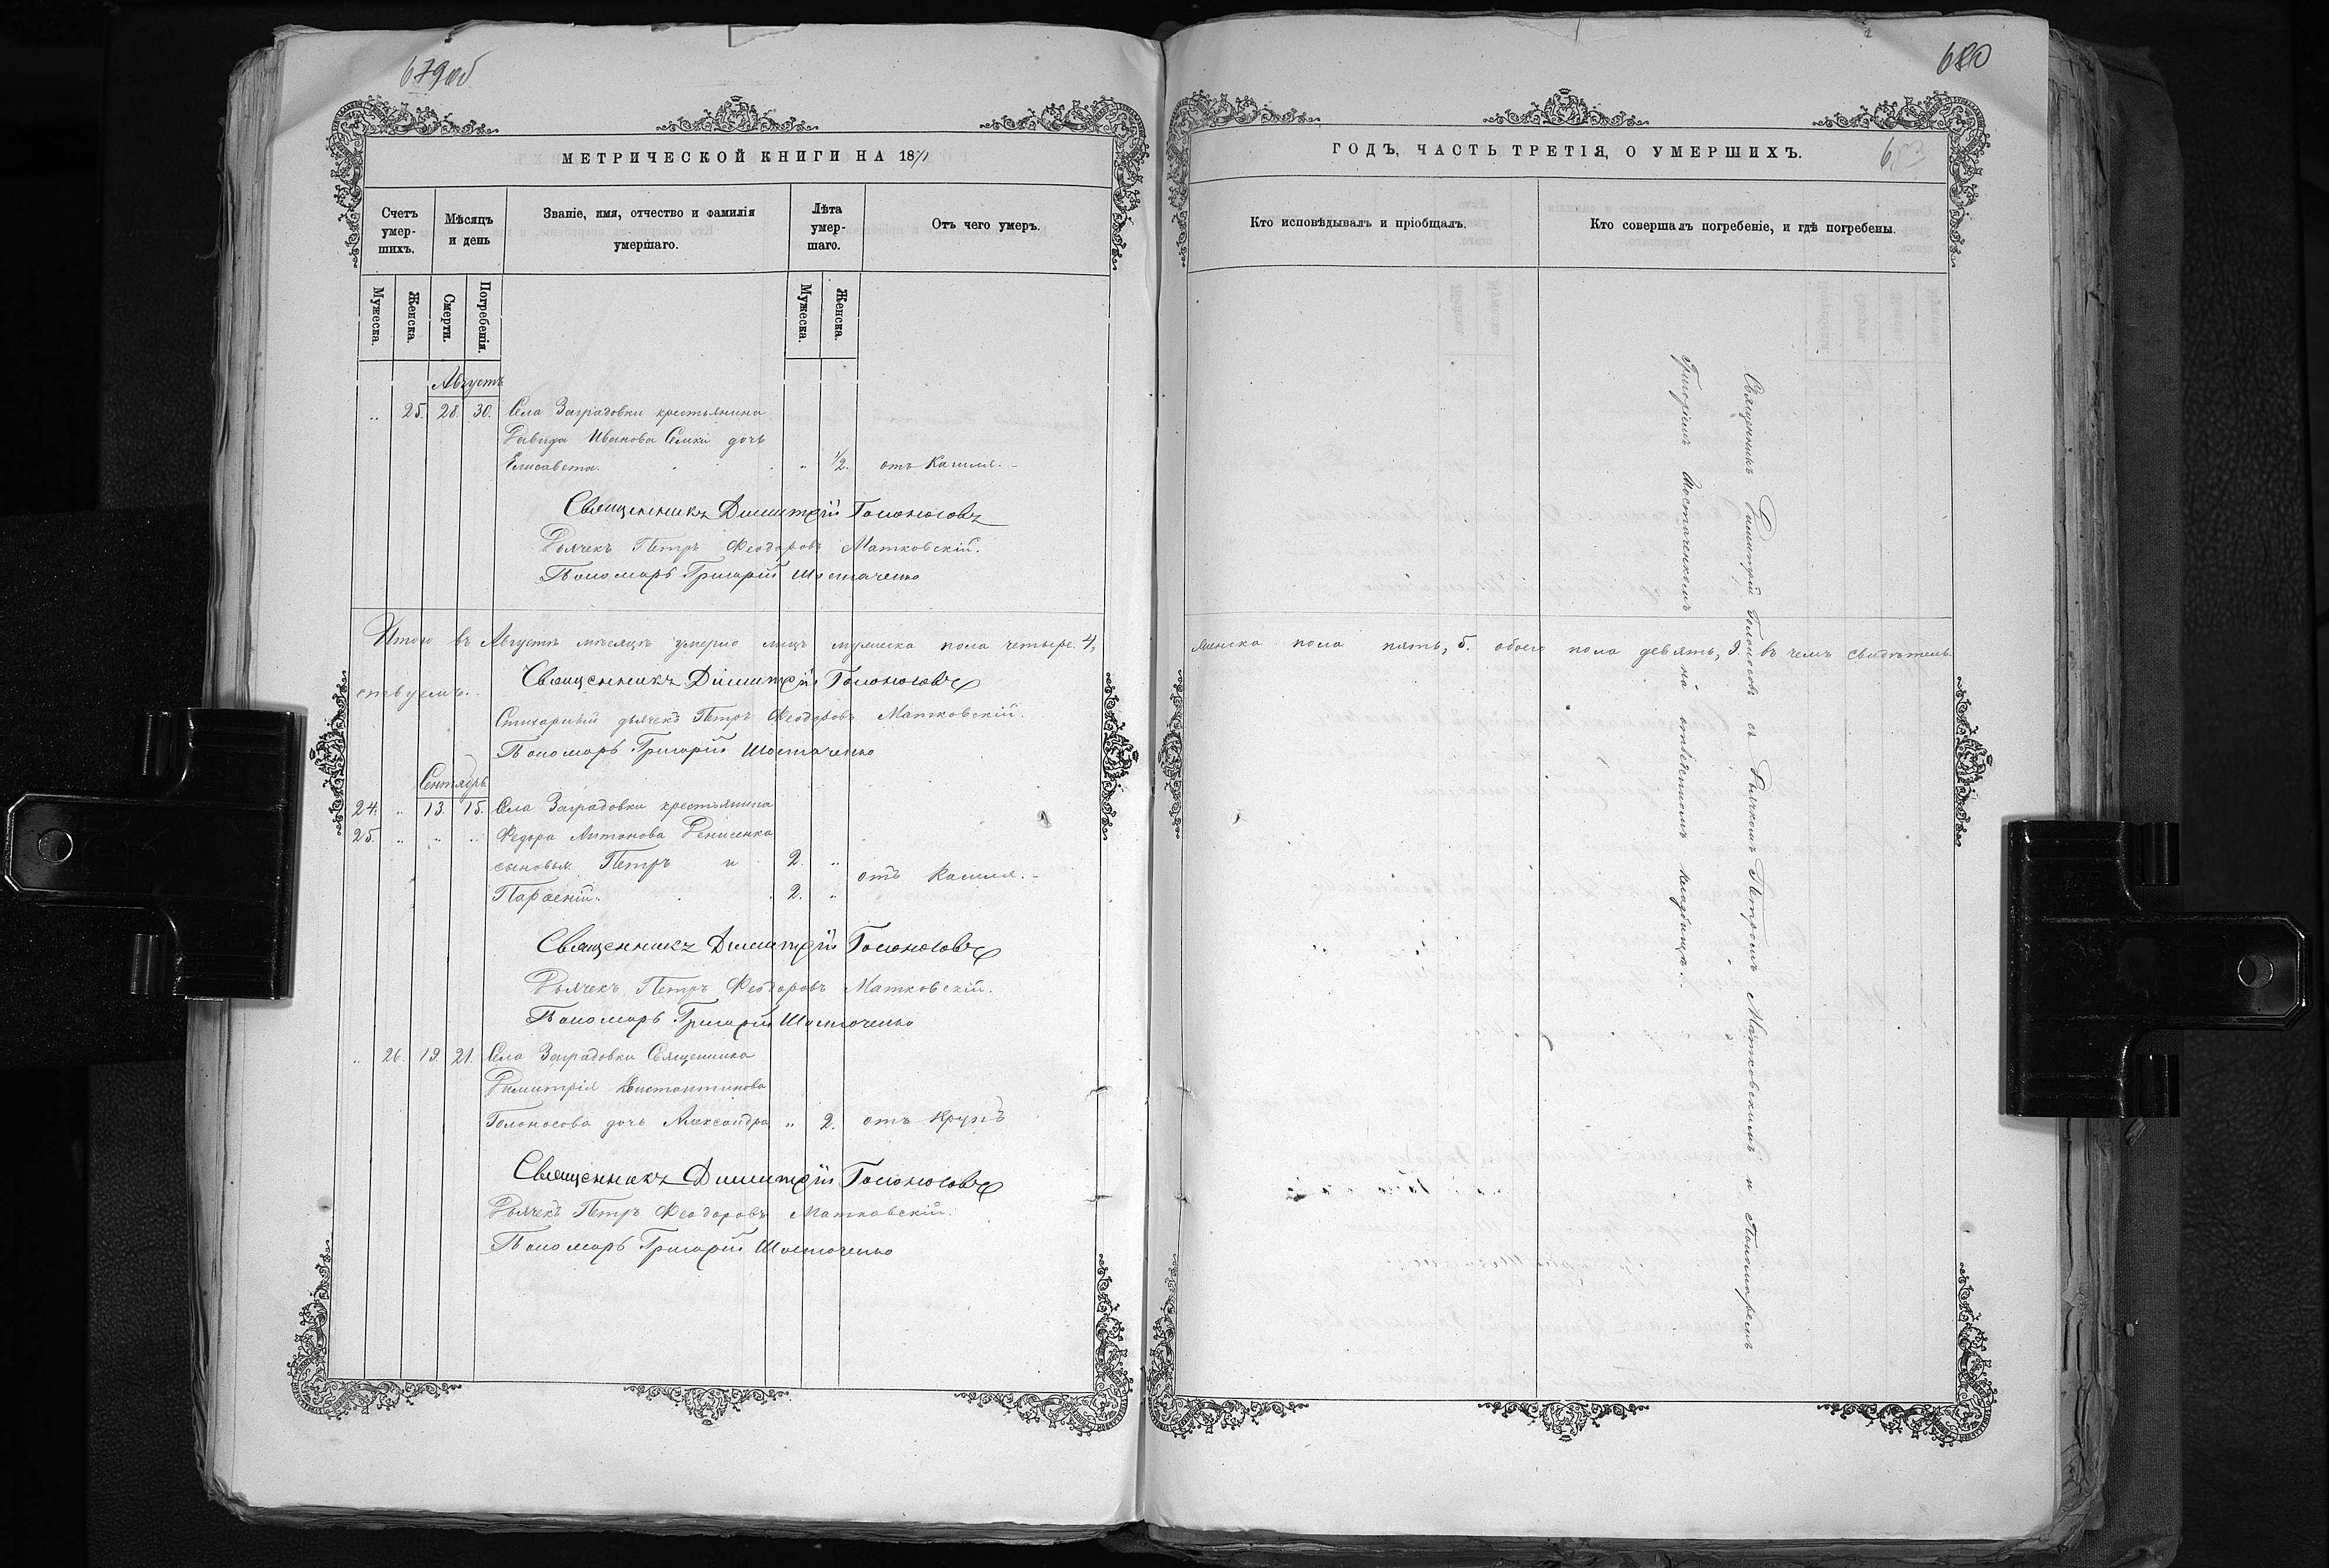 679об
МЕТРИЧЕСКОЙ КНИГИ НА 1871
Счетъ умер-шихъ.
Мѣсяцъ и день
Званіе, имя, отчество и фамилія умершаго.
Лѣта умер-шаго.
Отъ чего умеръ.
Мужеска.
Женска.
Смерти.
Погребенія.
Мужеска.
Женска.
Августъ
„ 25. 28. 30. Села Заградовки крестьянина
Давида Иванова Семки дочь
Елисавета. „ 1/2. отъ Кашля.
Священникъ Димитрій Голоносовъ
Дьячекъ Петръ Феодоровъ Матковскій.
Пономарь Григорій Шостаченко
Итого въ Августѣ мѣсяцѣ умерло лицъ мужеска пола четыре. 4,
Священникъ Димитрій Голоносовъ
ствуемъ.
Стихарный дьячекъ Петръ Феодоровъ Матковскій.
Пономарь Григорій Шостаченко
Сентябрь
24. „ 13. 15. Села Заградовки крестьянина
25. „ „ „ Федора Антонова Денисенка
сыновья. Петръ и 2. „
отъ Кашля.
Парѳеній. 2. „
Священникъ Димитрій Голоносовъ
Дьячекъ Петръ Феодоровъ Матковскій.
Пономарь Григорій Шостаченко
„ 26. 19. 21. Села Заградовки Священника
Димитрія Константинова
Голоносова дочь Александра „ 2. отъ Крупъ
Священникъ Димитрій Голоносовъ
Дьячекъ Петръ Феодоровъ Матковскій.
Пономарь Григорій Шостаченко
680
ГОДЪ, ЧАСТЬ ТРЕТІЯ, О УМЕРШИХЪ.
683
Кто исповѣдывалъ и пріобщалъ.
Кто совершалъ погребеніе, и гдѣ погребены.
женска пола пять, 5. обоего пола девять, 9. въ чемъ свидѣтель
Священникъ Димитрій Голоносовъ съ Дьячкомъ Петромъ Матковскимъ и Пономаремъ
Григоріемъ Шостаченкомъ на отведенномъ кладбищѣ.